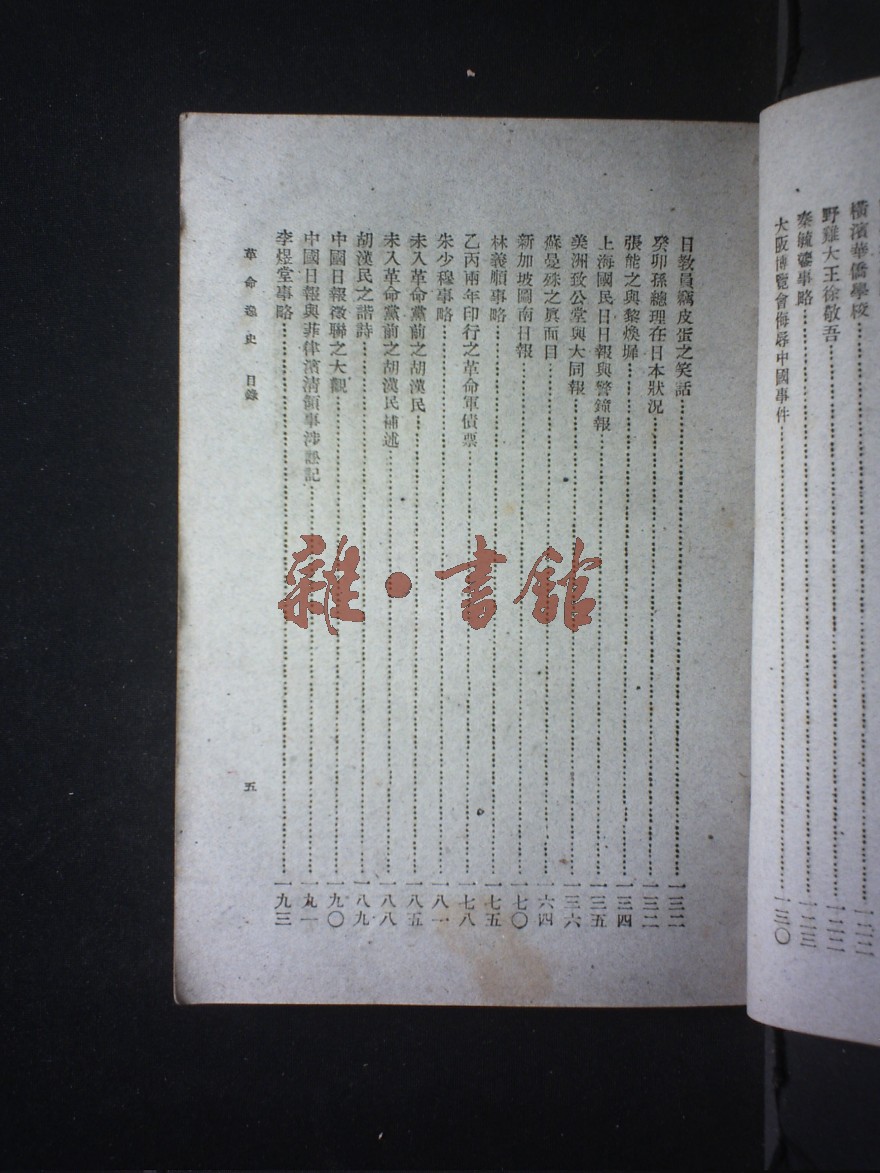 橫濱華僑學校……一二二
野雞大王徐敬吾……一二二
秦毓鎏事略……一二三
大阪博覽會侮辱中國事件……一三〇
日教員竊皮蛋之笑話……一三二
癸卯孫總理在日本狀況……一三二
張能之與黎煥墀……一三四
上海國民日日報與警鐘報……一三五
美洲致公堂與大同報……一三六
蘇曼殊之眞面目……一六四
新加坡圖南日報……一七〇
林義順事略……一七五
乙丙兩年印行之革命軍債票……一七八
朱少穆事略……一八一
未入革命黨前之胡漢民……一八五
未入革命黨前之胡漢民補述……一八八
胡漢民之諧詩……一八九
中國日報徵聯之大觀……一九〇
中國日報與菲律濱清領事涉訟記……一九一
李煜堂事略……一九三
革命逸史 目錄 五
雜·書館